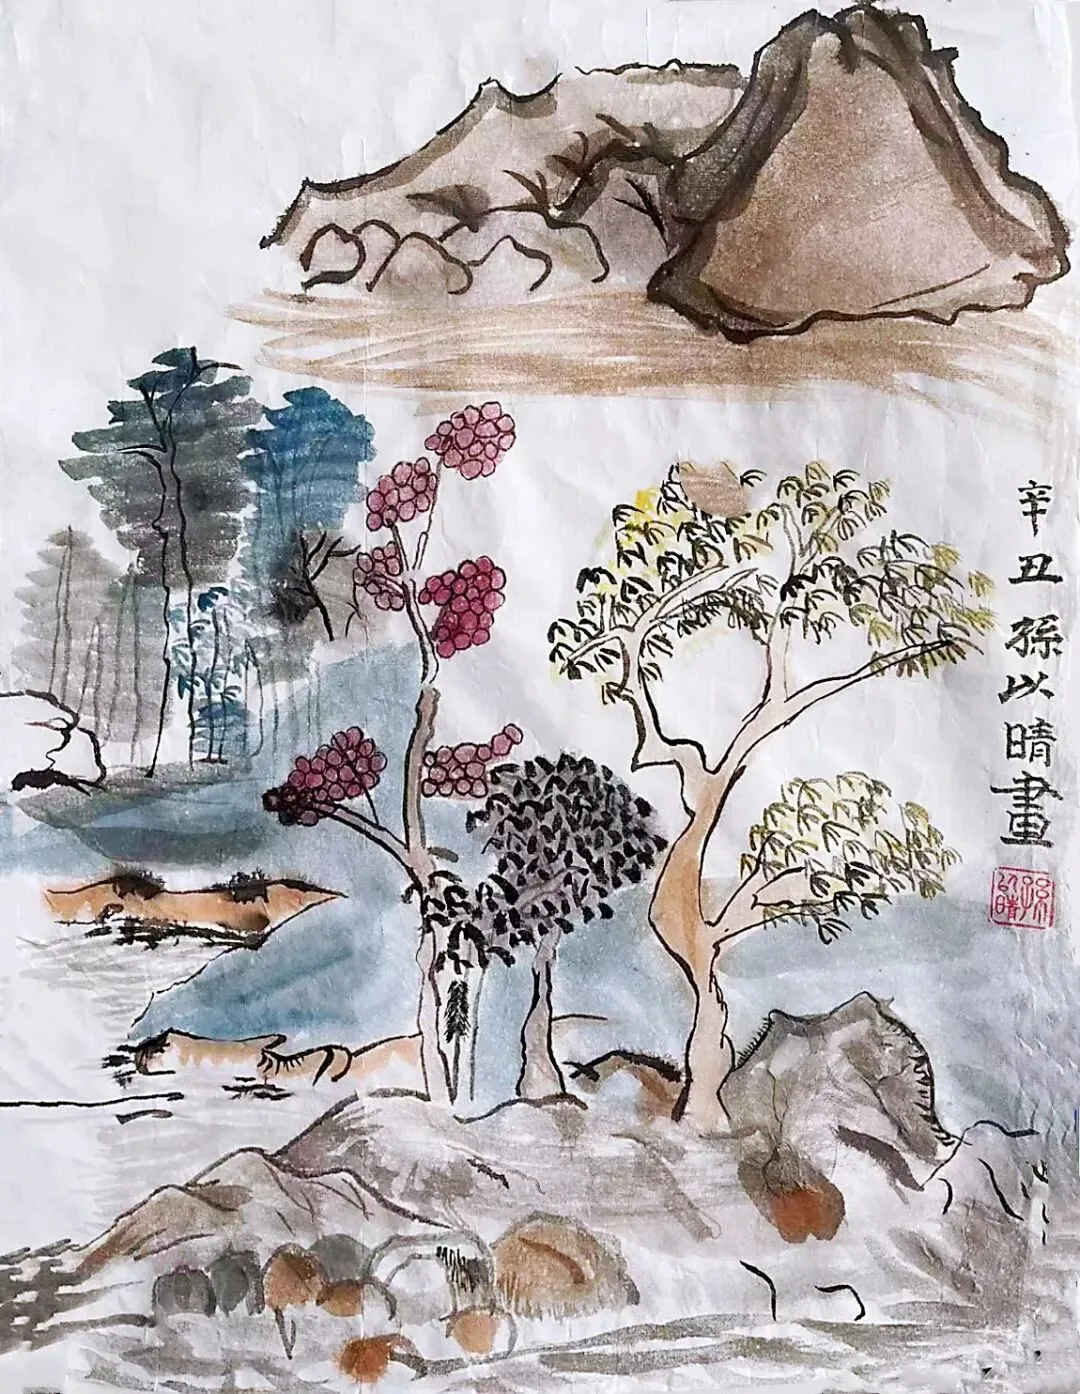 辛丑孫以晴畫
孫以晴